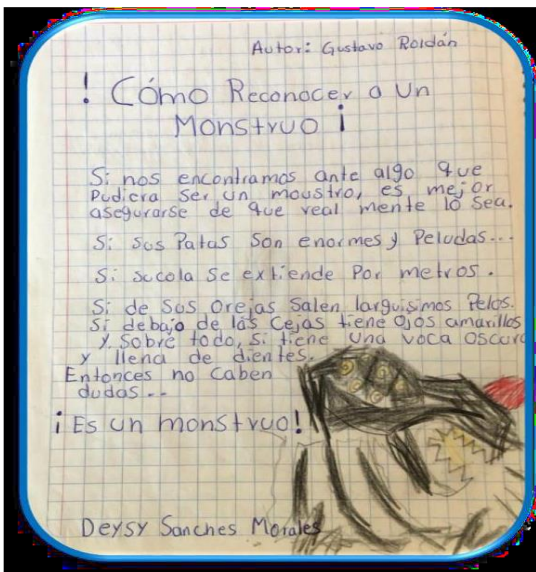 Autor: Gustavo Roldán
! Cómo Reconocer a Un
Monstruo ¡
Si nos encontramos ante algo que
Pudiera ser un moustro, es mejor
asegurarse de que real mente lo sea.
Si sus Patas Son enormes y Peludas...
Si sucola Se extiende Por metros.
Si de Sus Orejas Salen larguisimos Pelos.
Si debajo de las Cejas tiene Ojos amarillos
y sobre todo, si tiene una voca oscura
y llena de dientes.
Entonces no caben
dudas...
¡Es un monstruo!
Deysy Sanches Morales